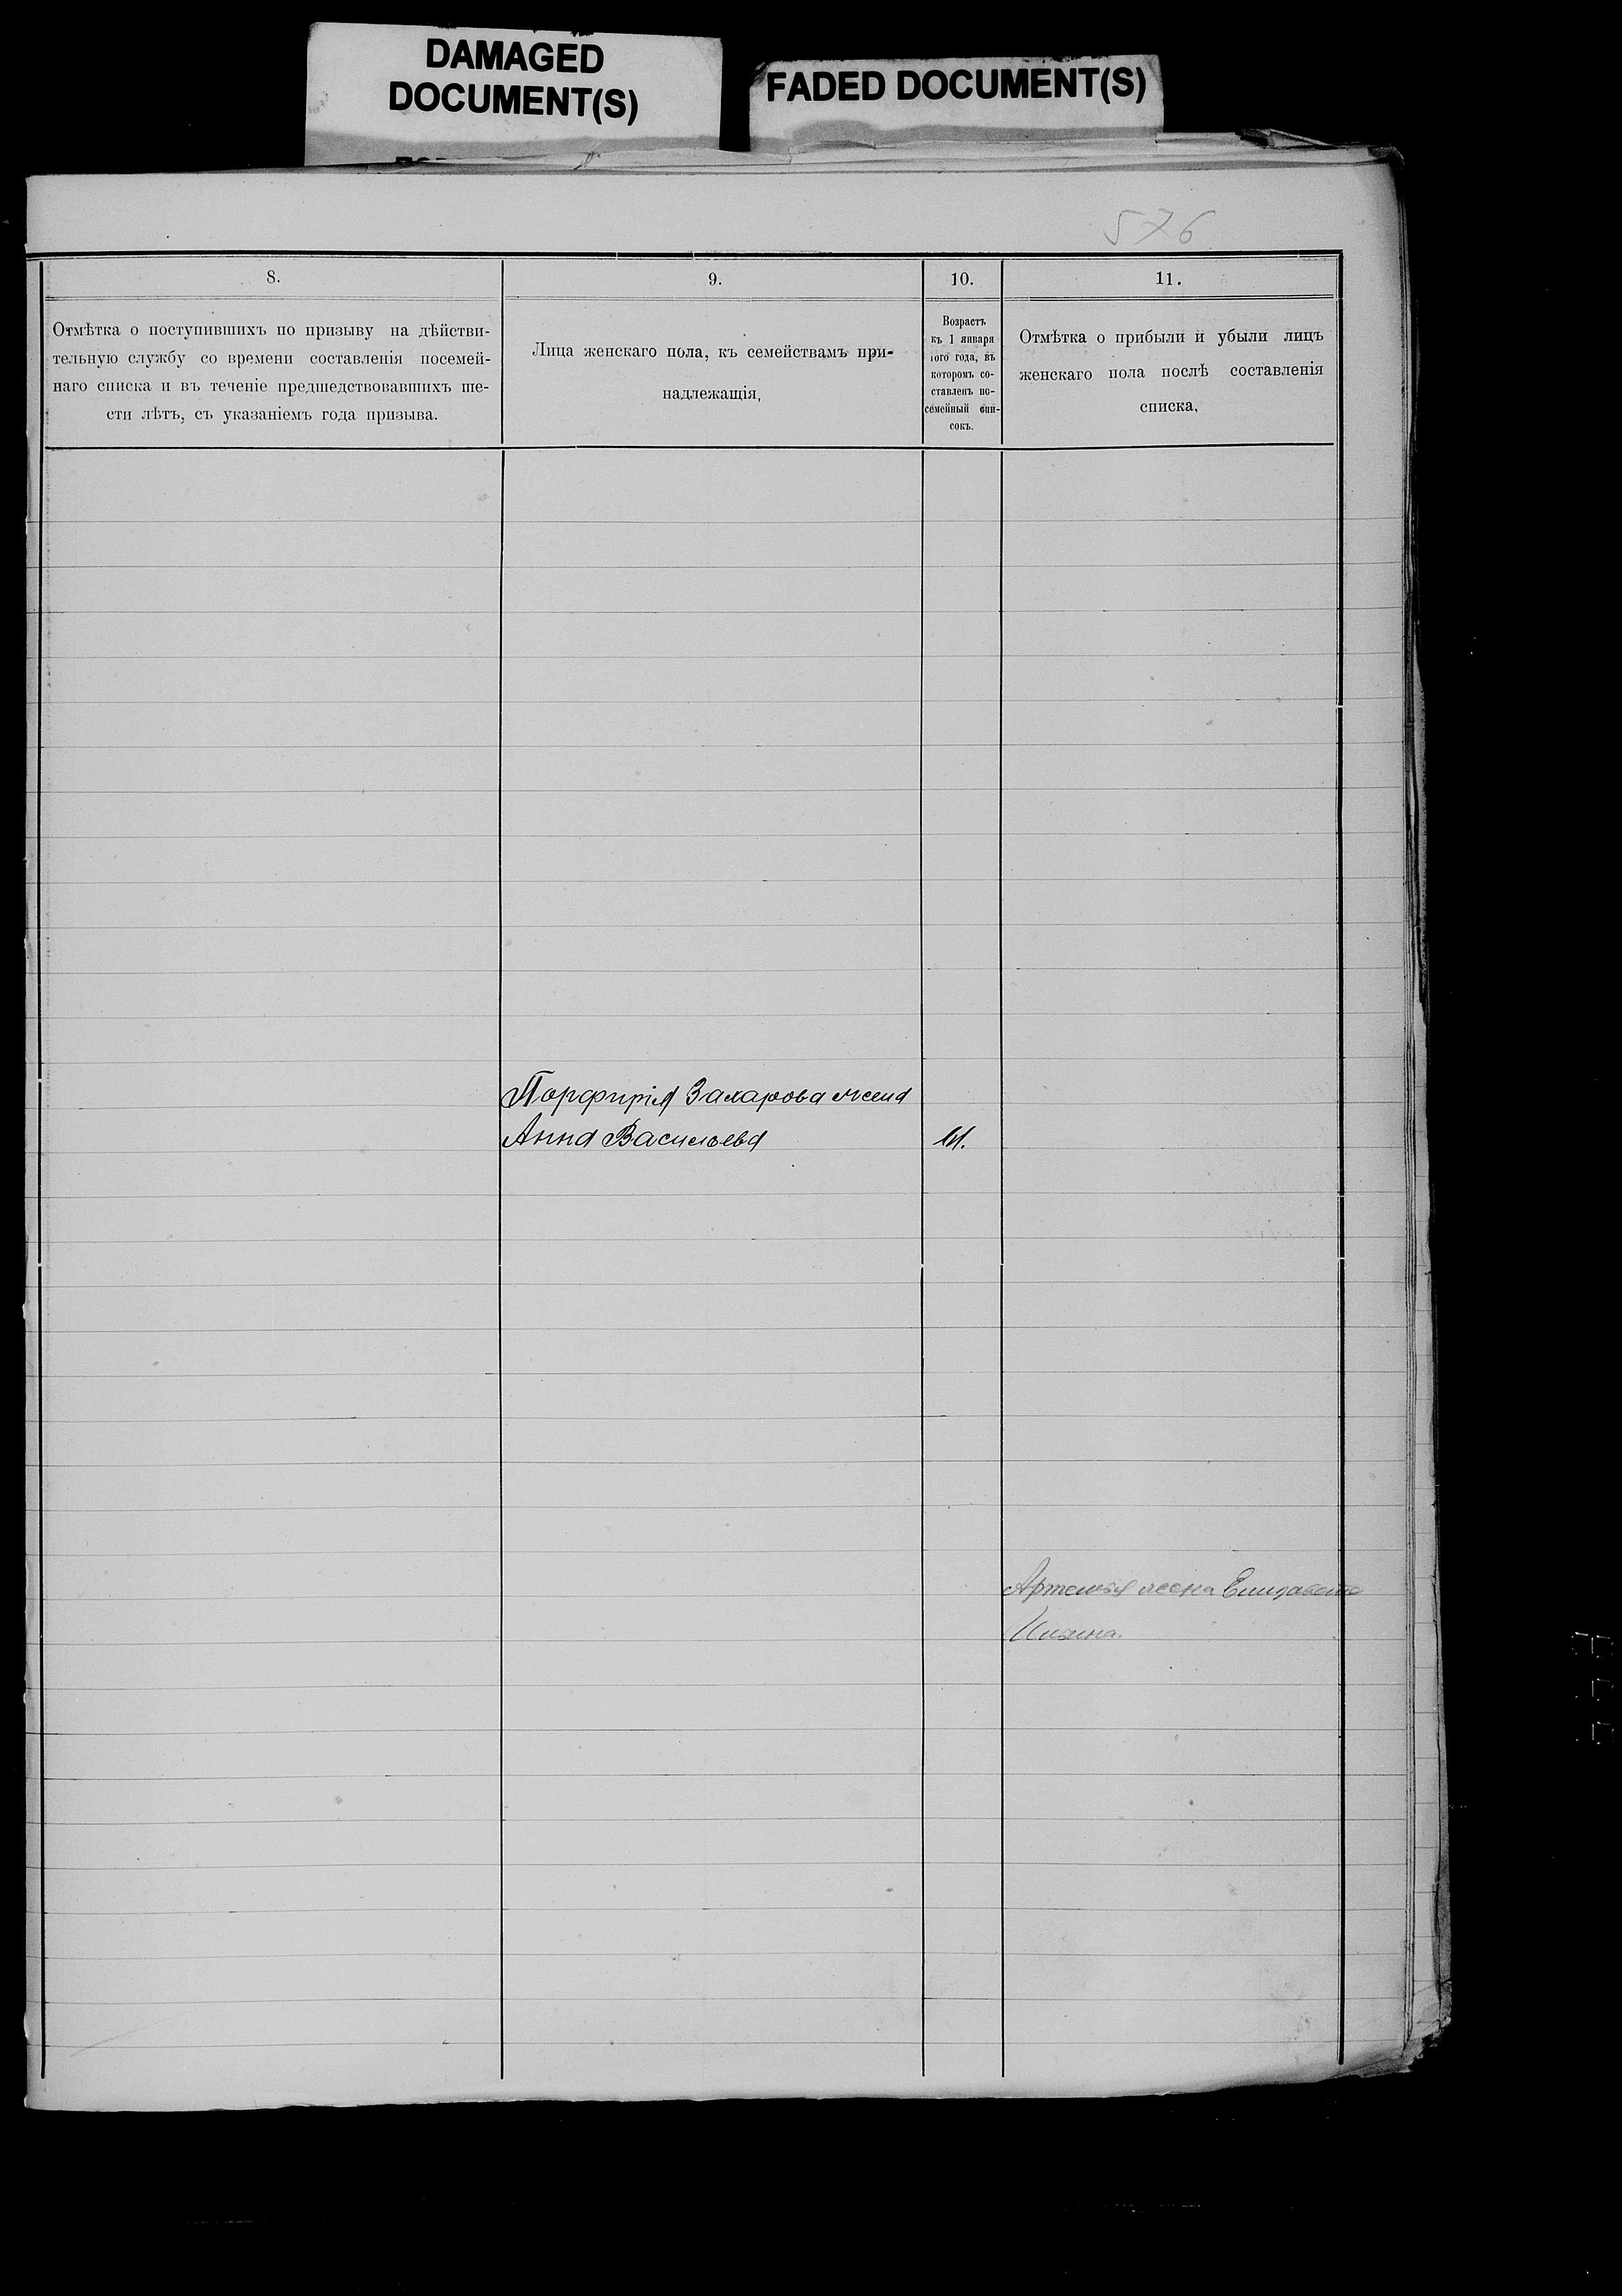 DAMAGED
DOCUMENT(S)
FADED DOCUMENT(S)
576
8.
9.
10.
11.
Отмѣтка о поступившихъ по призыву на дѣйстви-
тельную службу со времени составленія посемей-
наго списка и въ теченіе предшедствовавшихъ ше-
сти лѣтъ, съ указаніемъ года призыва.
Лица женскаго пола, къ семействамъ при-
надлежащія,
Возрастъ
къ 1 января
того года, въ
которомъ со-
ставленъ по-
семейный спи-
сокъ.
Отмѣтка о прибыли и убыли лицъ
женскаго пола послѣ составленія
списка,
Порфирія Захарова жена
Анна Васильева
Артемья жена Елизавета